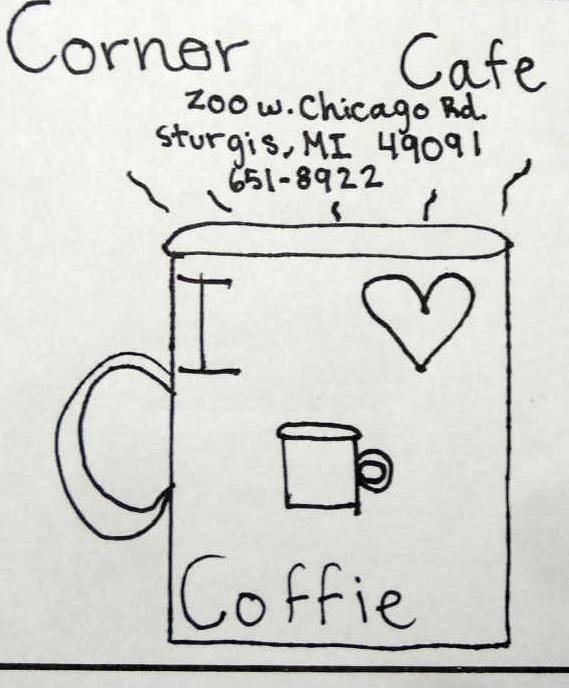 Corner Cafe
200 w. Chicago Rd.
Sturgis, MI 49091
651-8922
I
Coffie